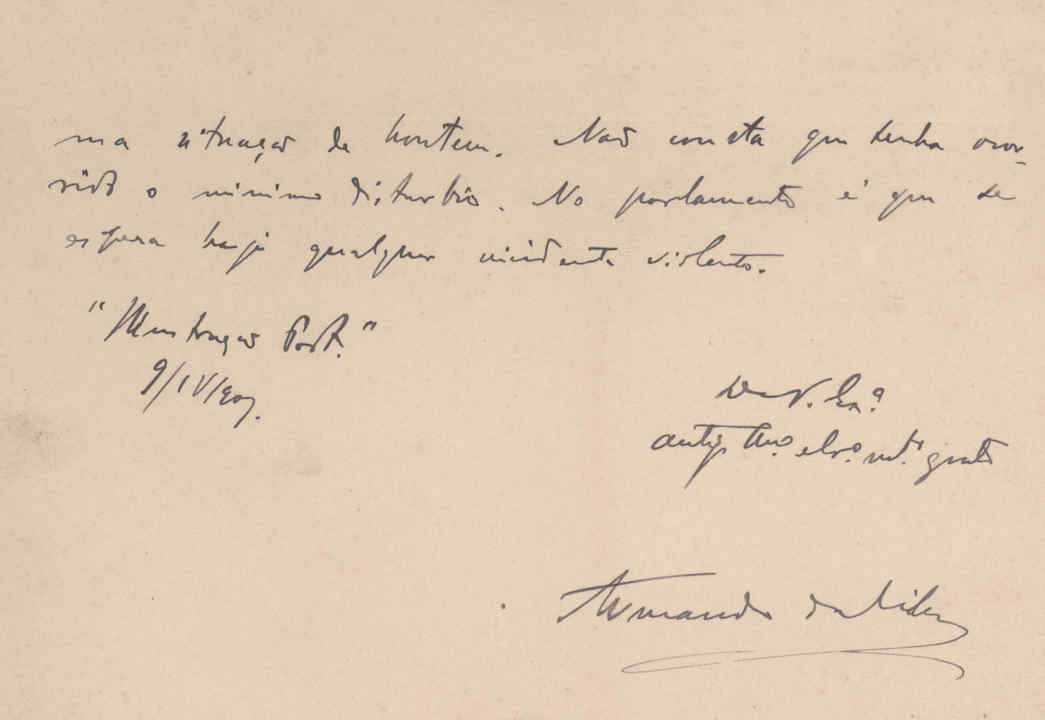 ma situação de hontem. Não consta que tenha ocor-
rido o minimo disturbio. No parlamento é que se
espera haja qualquer incidente violento.
"Illustração Port."
9/IV/907.
De V. Ex.ª
antig. Am.º e Cr.º mt.º grato
Armando da Silva